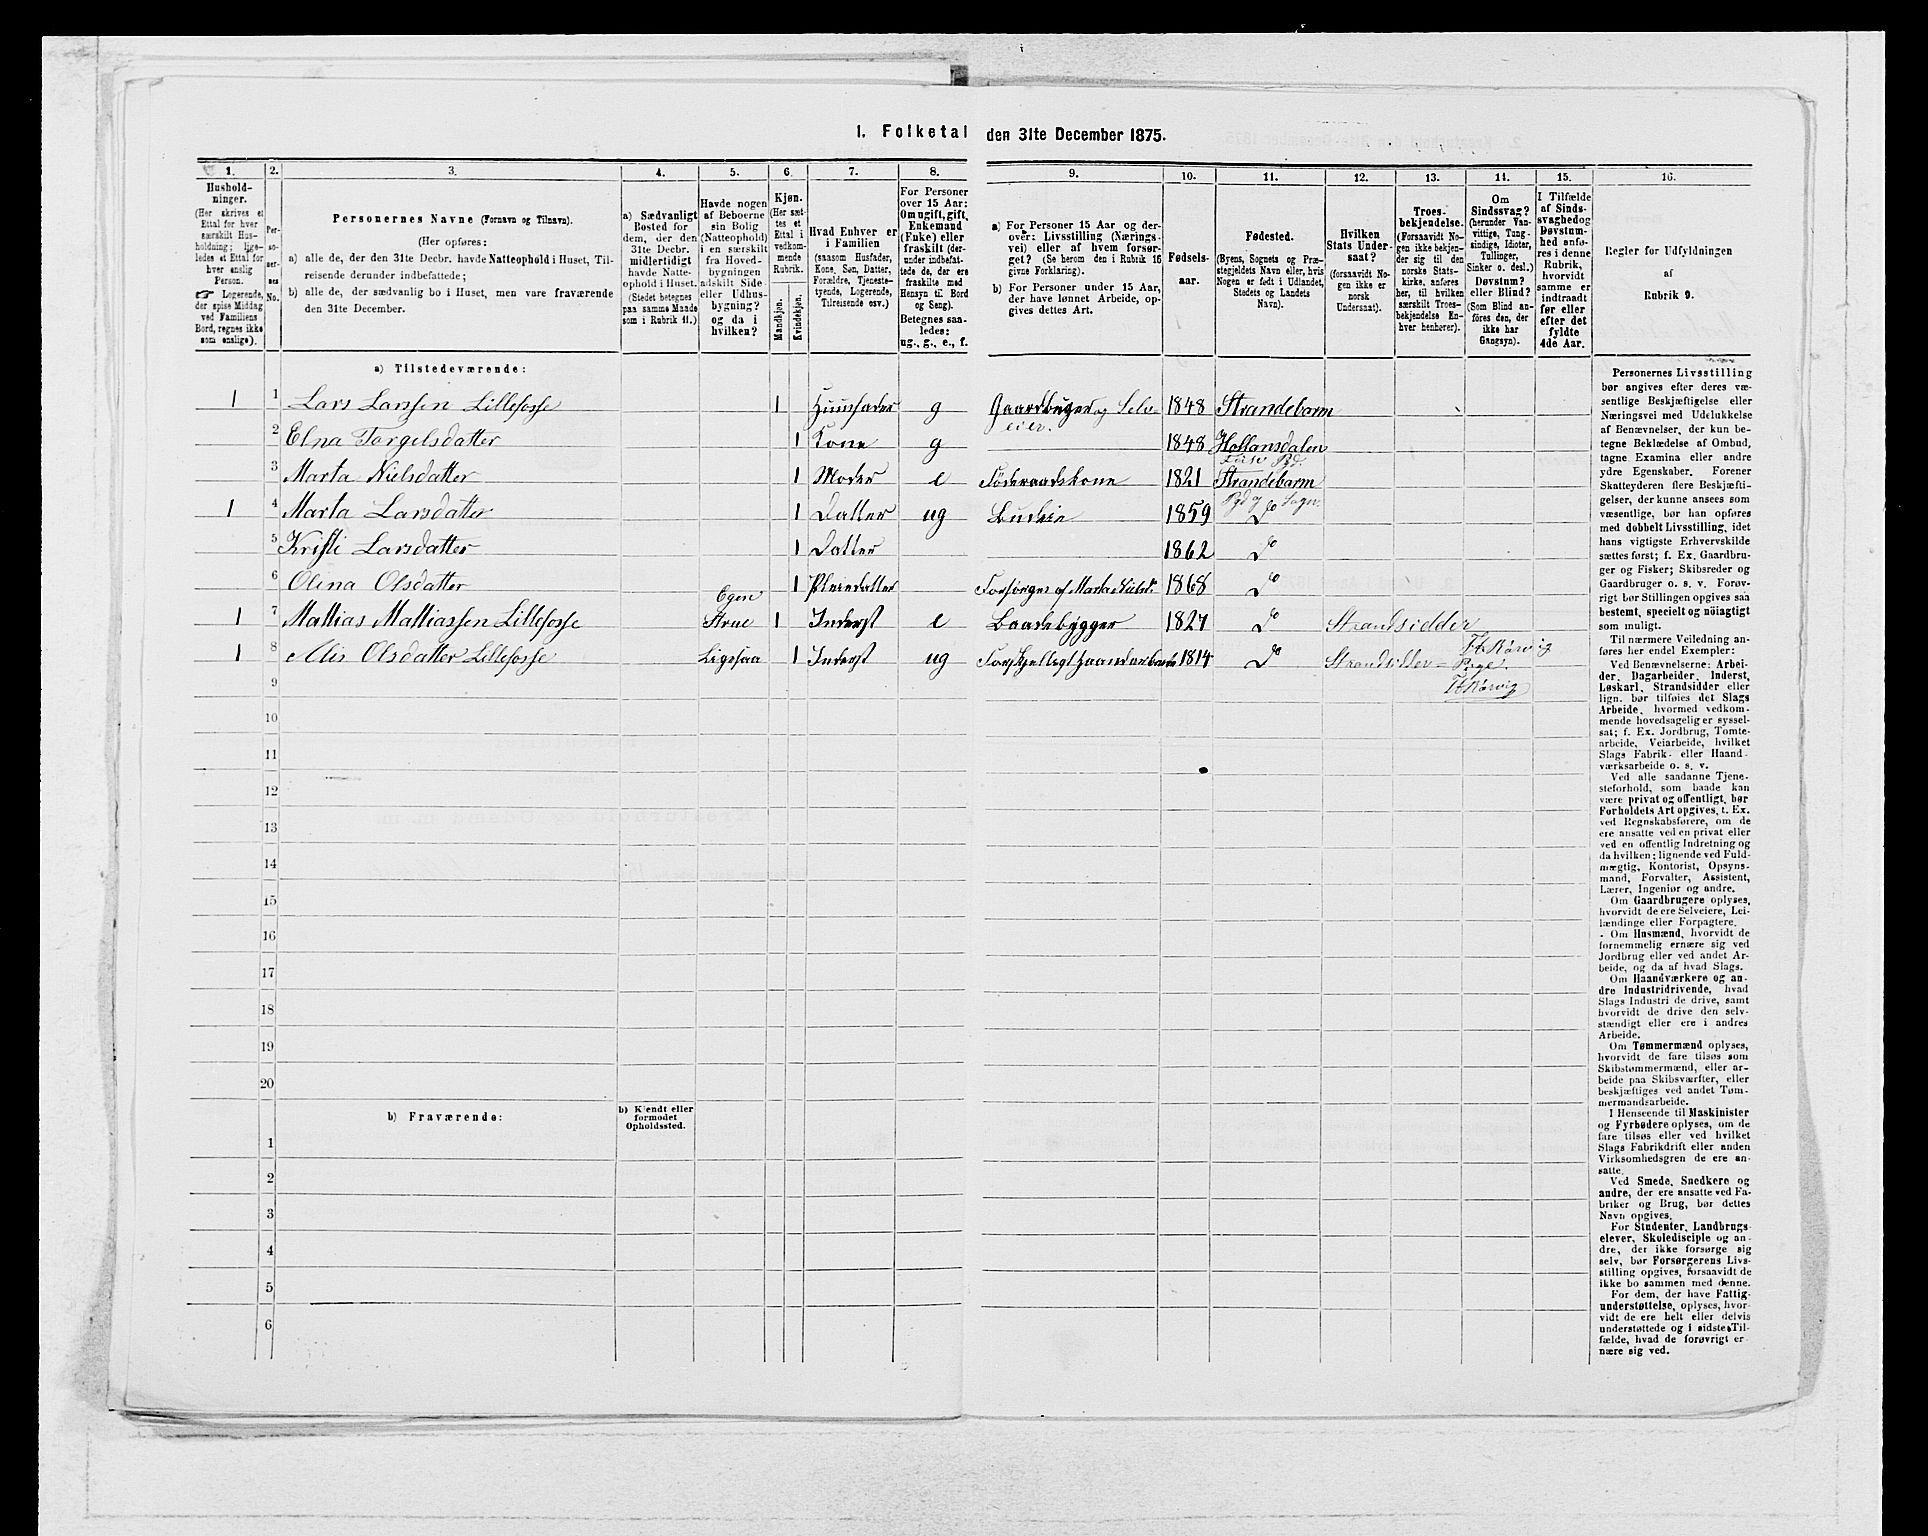 1. Folketal den 31te December 1875.
1. 2. 3. 4. 5. 6. 7. 8. 9. 10. 11. 12. 13. 14. 15. 16.
Hushold-
ninger.
(Her skrives et
Ettal for hver
særskilt Hus-
holdning; lige-
ledes et Ettal for
hver enslig
Person.
☞ Logerende,
der spise Middag
ved Familiens
Bord, regnes ikke
som enslige).
Per-
so-
ner-
nes
No.
Personernes Navne (Fornavn og Tilnavn).
(Her opføres:
a) alle de, der den 31te Decbr. havde Natteophold i Huset, Til-
reisende derunder indbefattede;
b) alle de, der sædvanlig bo i Huset, men vare fraværende
den 31te December.
a) Sædvanligt
Bosted for
dem, der den
31te Decbr.
midlertidigt
havde Natte-
ophold i Huset.
(Stedet betegnes
paa samme Maade
som i Rubrik 11.)
Havde nogen
af Beboerne
sin Bolig
(Natteophold)
i en særskilt
fra Hoved-
bygningen
adskilt Side-
eller Udhus-
bygning?
og da i
hvilken?
Kjøn.
(Her sæt-
tes et
Ettal i
vedkom-
mende
Rubrik.
Mandkjøn.
Kvindekjøn.
Hvad Enhver er
i Familien
(saasom Husfader,
Kone, Søn, Datter,
Forældre, Tjeneste-
tyende, Logerende,
Tilreisende osv.)
For Personer
over 15 Aar:
Om ugift, gift,
Enkemand
(Enke) eller
fraskilt (der-
under indbefat-
tede de, der ere
fraskilte med
Hensyn til Bord
og Seng).
Betegnes saa-
ledes:
ug., g., e., f.
a) For Personer 15 Aar og der-
over: Livsstilling (Nærings-
vei) eller af hvem forsør-
get? (Se herom den i Rubrik 16
givne Forklaring).
b) For Personer under 15 Aar,
der have lønnet Arbeide, op-
gives dettes Art.
Fødsels-
aar.
Fødested.
(Byens, Sognets og Præ-
stegjeldets Navn eller, hvis
Nogen er født i Udlandet,
Stedets og Landets
Navn).
Hvilken
Stats Under-
saat?
(forsaavidt No-
gen ikke er
norsk
Undersaat).
Troes-
bekjendelse.
(Forsaavidt No-
gen ikke bekjen-
der sig til den
norske Stats-
kirke, anføres
her, til hvilken
særskilt Troes-
bekjendelse En-
hver henhører).
Om
Sindssvag?
(herunder Van-
vittige, Tung-
sindige, Idioter,
Tullinger,
Sinker o. desl.)
Døvstum?
eller Blind?
(Som Blind an-
føres den, der
ikke har
Gangsyn).
I Tilfælde
af Sinds-
svaghed og
Døvstum-
hed anfø-
res i denne
Rubrik,
hvorvidt
samme er
indtraadt
før eller
efter det
fyldte
4de Aar.
Regler for Udfyldningen
af
Rubrik 9.
a) Tilstedeværende:
1 1 Lars Larsen Lillefosse 1 Huusfader g Gaardbruger og Selv-
eier. 1848 Strandebarm
2 Elna Torgelsdatter 1 Kone g 1848 Hollansdalen
3 Marta Nielsdatter 1 Moder e Føderaadskone 1821 Strandebarm
Pgd og Sogn.
1 4 Marta Larsdatter 1 Datter ug Budeie 1859 Do
5 Kristi Larsdatter 1 Datter 1862 Do
6 Olina Olsdatter 1 Pleiedatter Forsørges af Marta Nielsd. 1868 Do
1 7 Mattias Mattiassen Lillefosse Egen
Stue 1 Inderst e Baadebygger 1827 Do Strandsidder
1 8 Olsdatter Lillefosse Ligesaa 1 Inderst ug Forskjelligt Haandarbeide 1814 Do Strandsidder
9
10
11
12
13
14
15
16
17
18
19
20
b) Fraværende:
b) Kjendt eller
formodet
Opholdssted.
1
2
3
4
5
6
Personernes Livsstilling
bør angives efter deres væ-
sentlige Beskjæftigelse eller
Næringsvei med Udelukkelse
af Benævnelser, der kun be-
tegne Beklædelse af Ombud,
tagne Examina eller andre
ydre Egenskaber. Forener
Skatteyderen flere Beskjæfti-
gelser, der kunne ansees som
væsentlige, bør han opføres
med dobbelt Livsstilling, idet
hans vigtigste Erhvervskilde
sættes først; f. Ex. Gaardbru-
ger og Fisker; Skibsreder og
Gaardbruger o. s. v. Forøv-
rigt bør Stillingen opgives saa
bestemt, specielt og nöiagtigt
som muligt.
Til nærmere Veiledning an-
føres her endel Exempler:
Ved Benævnelserne: Arbei-
der, Dagarbeider, Inderst,
Løskarl, Strandsidder eller
lign. bør tilføies det Slags
Arbeide, hvormed vedkom-
mende hovedsagelig er syssel-
sat; f. Ex. Jordbrug, Tomte-
arbeide, Veiarbeide, hvilket
Slags Fabrik- eller Haand-
værksarbeide o. s. v.
Ved alle saadanne Tjene-
steforhold, som baade kan
være privat og offentligt, bør
Forholdets Art opgives, t. Ex.
ved Regnskabsførere, om de
ere ansatte ved en privat eller
ved en offentlig Indretning og
da hvilken; lignende ved Fuld-
mægtig, Kontorist, Opsyns-
mand, Forvalter, Assistent,
Lærer, Ingeniør og andre.
Om Gaardbrugere oplyses,
hvorvidt de ere Selveiere, Lei-
lændinge eller Forpagtere.
Om Husmænd, hvorvidt de
fornemmelig ernære sig ved
Jordbrug eller ved andet Ar-
beide, og da af hvad Slags.
Om Haandværkere og an-
dre Industridrivende, hvad
Slags Industri de drive, samt
hvorvidt de drive den selv-
stændigt eller ere i andres
Arbeide.
Om Tømmermænd oplyses,
hvorvidt de fare tilsøs som
Skibstømmermænd, eller ar-
beide paa Skibsværfter, eller
beskjæftiges ved andet Tøm-
mermandsarbeide.
I Henseende til Maskinister
og Fyrbødere oplyses, om de
fare tilsøs eller ved hvilket
Slags Fabrikdrift eller anden
Virksomhedsgren de ere an-
satte.
Ved Smede, Snedkere og
andre, der ere ansatte ved Fa-
briker og Brug, bør dettes
Navn opgives.
For Studenter, Landbrugs-
elever, Skoledisciple og an-
dre, der ikke forsørge sig
selv, bør Forsørgerens Livs-
stilling opgives, forsaavidt de
ikke bo sammen med denne.
For dem, der have Fattig-
understøttelse, oplyses, hvor-
vidt de ere helt eller delvis
understøttede og i sidste Til-
fælde, hvad de forøvrigt er-
nære sig ved.